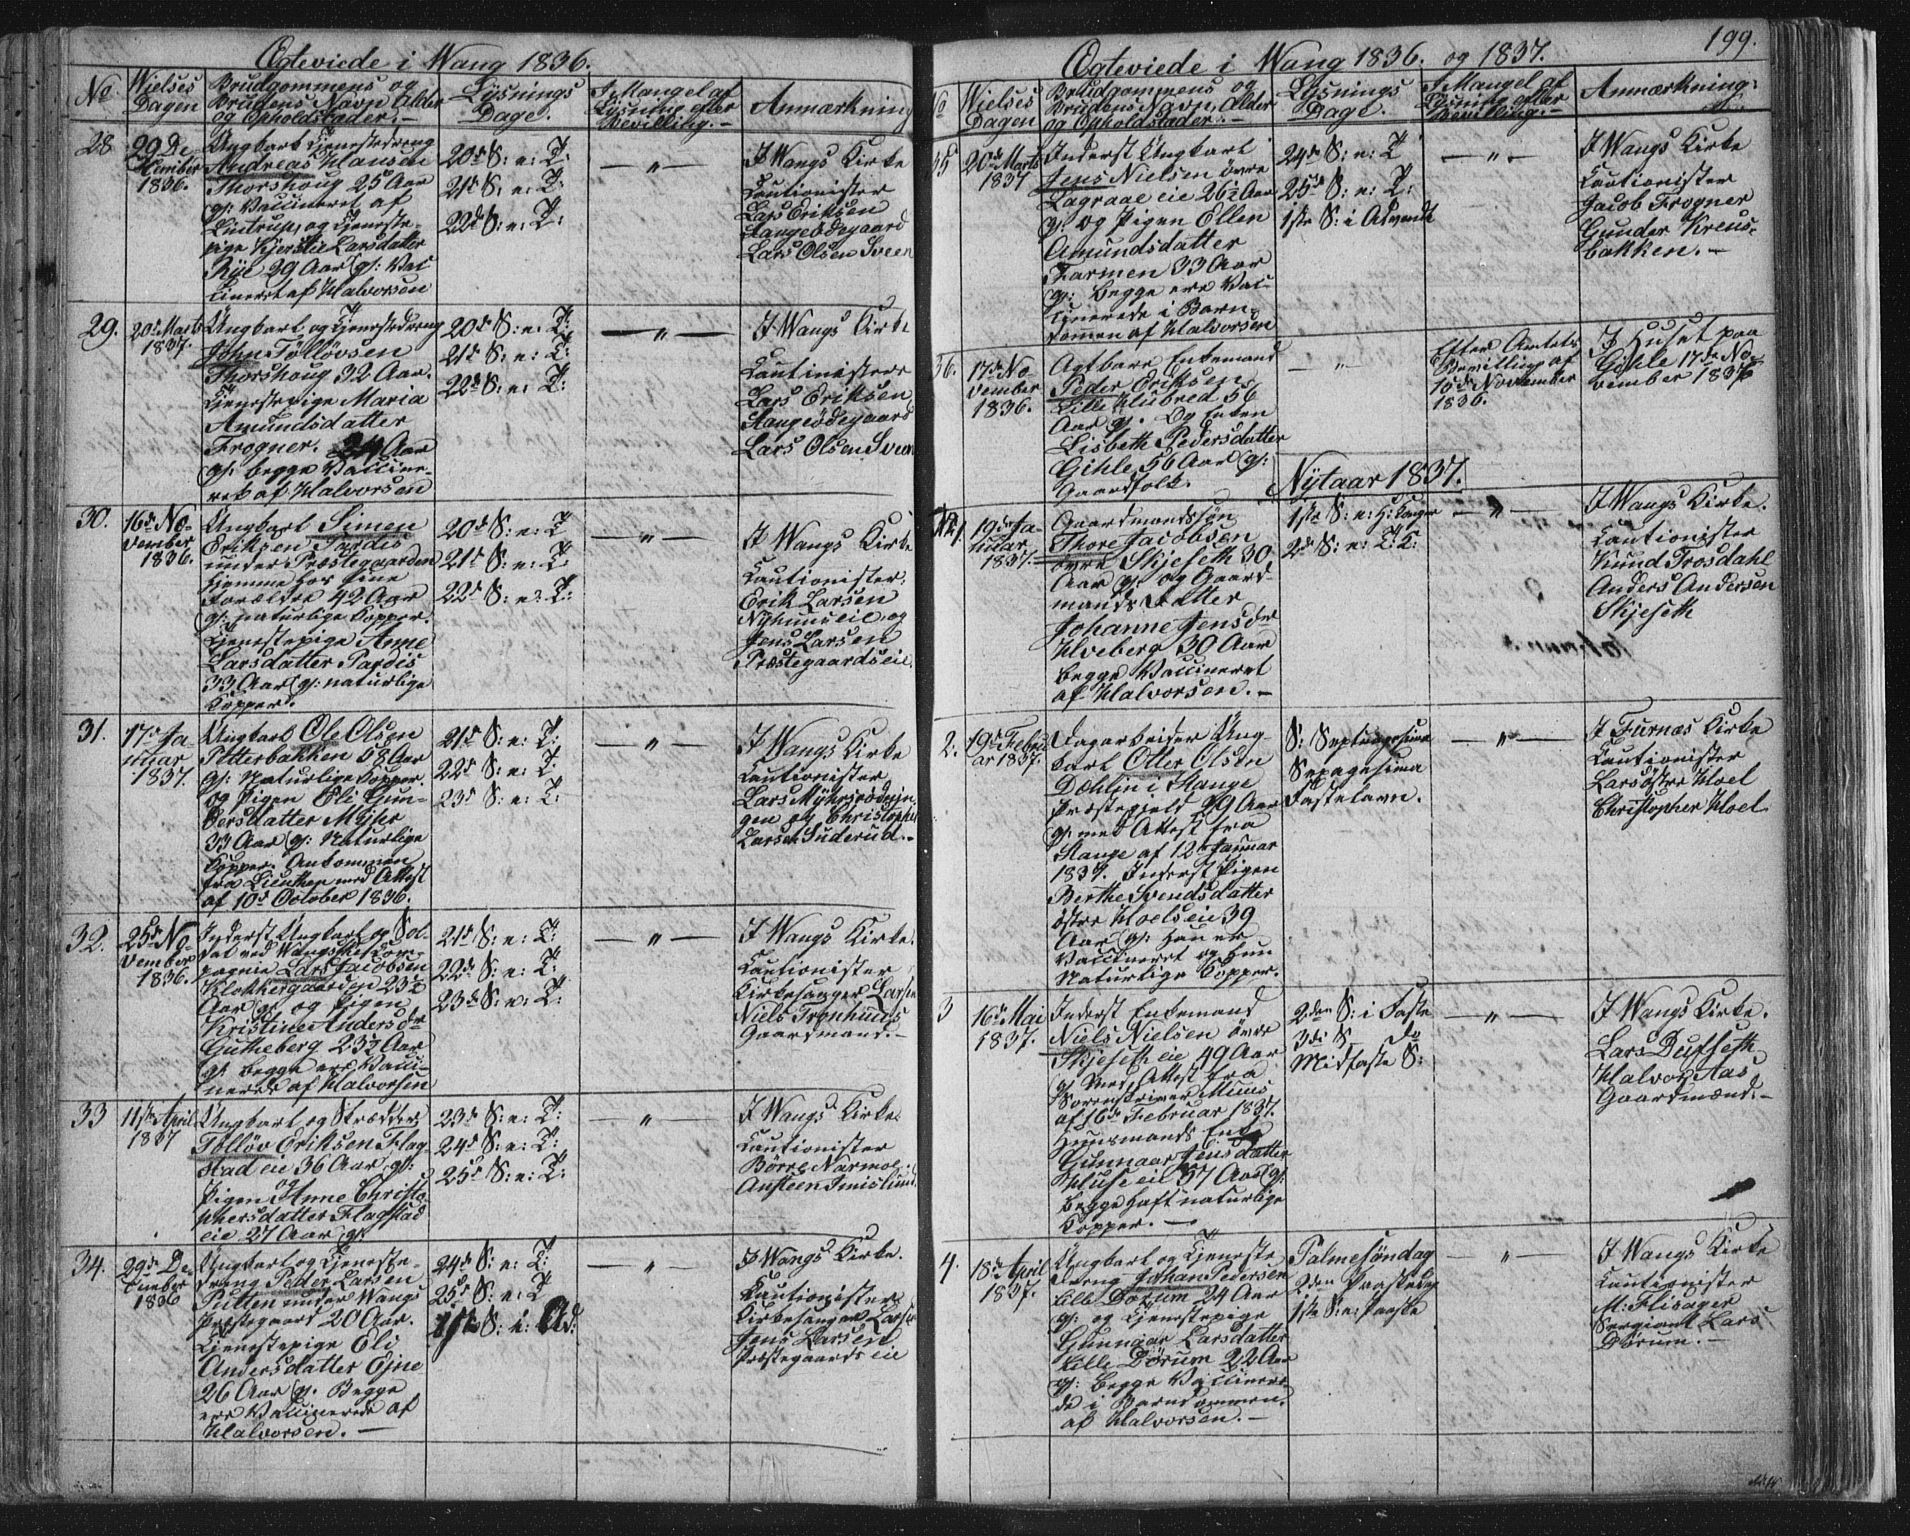 Ægteviede i Wang 1836.
No
Vielses Dagen
Brudgommens og
Brudens Navn Alder
og Opholdssteder. –
Lysnings
Dage.
I Mangel af
Lysning efter
Bevilling. –
Anmærkning
28
29 De
cember
1836.
Ungkarl Tjenestedreng
Andreas Hansen
Thorshoug 25 Aar
g: Vaccineret af
og Tjeneste-
pige Kjersti Larsdatter
Rye 29 Aar g: Vac
cineret af Halvorsen
20de S: e: T:
21de S: e: T:
22de S: e: T:
– " –
I Wangs Kirke
Cautionister
Lars Eriksen
Stangeødegaard
Lars Olsen Sveen
29.
20de Marts
1837.
Ungkarl og Tjenestedreng
John Tolløvsen
Thorshoug 32 Aar.
Tjenestepige Maria
Amundsdatter
Frogner. 24 Aar
g: begge Vaccine-
ret af Halvorsen
20de S: e: T:
21de S: e: T:
22de S: e: T:
– " –
I Wangs Kirke
Cautionister
Lars Eriksen
Stangeødegaard
Lars Olsen Sveen
30.
16de No-
vember
1836.
Ungkarl Simen
Eriksen Pardis
under Præstegaarden
hjemme hos sine
Forældre 42 Aar
g: naturlige Kopper.
Tjenestepige Anne
Larsdatter Pardis
33 Aar g: naturlige
Kopper.
20de S: e: T:
21de S: e: T:
22de S: e: T:
– " –
I Wangs Kirke
Cautionister:
Erik Larsen
Nyhuuseie og
Jens Larsen
Præstegaardseie
31.
17de Ja-
nuar
1837.
Ungkarl Ole Olsen
Petterbakken 58 Aar
g: Naturlige Kopper.
og Pigen Eli Gun-
dersdatter Myhr
33 Aar g: Naturlige
Kopper. Ankommen
fra Lieuthen med Attest
af 10de October 1836.
21de S: e: T:
22de S: e: T:
23de S: e: T:
– " –
I Wangs Kirke
Cautionister
Lars
gen og Christopher
Larsen Suderud. –
32.
25de No-
vember
1836.
Inderst Ungkarl og Sol-
dat ved Wangske Com-
pagnie Lars Jacobsen
Klokkergaarden 23½
Aar g: og Pigen
Kristine Andersdr
Gutheberg 23¾ Aar
g: begge ere Vacci-
nerede af Halvorsen
21de S: e: T:
22de S: e: T:
23de S: e: T:
– " –
I Wangs Kirke.
Cautionister
Kirkesanger Larsen
Niels Tronhuus
Gaardmand. –
33
11te April
1837
Ungkarl og Skrædder
Tolløv Eriksen Flag-
stad eie 36 Aar g:
og
Pigen Anne Christo
phersdatter Flagstad
eie 27 Aar g:
23de S: e: T:
24de S: e: T:
25de S: e: T:
"
I Wangs Kirke
Cautionister
Børre Narmoe
Austeen Imislund.
34.
29de De
cember
1836
Ungkarl og Tjeneste-
dreng Peder Larsen
Putten under Wangs
Præstegaard 20 Aar.
Tjenestepige Eli
Andersdatter Ejne
26 Aar g: Begge
ere Vaccinerede af
Halvorsen. –
24de S: e: T:
25de S: e: T
1ste S: i: Ad:
– " –
I Wangs Kirke.
Cautionister
Kirkesanger Larsen
Jens Larsen
Præstegaards eie
Ægteviede i Wang 1836. og 1837.
199.
No
Vielses
Dagen
Brudgommens og
Brudens Navn Alder
og Opholdsstæder. –
Lysnings
Dage.
I Mangel af
Lysning efter
Bevilling. –
Anmærkning:
35
20de Marts
1837
Inderst Ungkarl
Jens Nielsen øvre
Lagraae eie 26½ Aar
g: og Pigen Ellen
Amundsdatter
Farmen 33 Aar
g: begge ere Vac
cinerede i Barn
dommen af Halvorsen
24de S: e: T
25de S: e: T:
1ste S: i Advendt
– " –
I Wangs Kirke
Cautionister
Jacob Frogner
Gunder Kreus-
bakken. –
36.
17de No-
vember
1836.
Agtbare Enkemand
Peder Eriksen
Lille Klubred 56
Aar g. Og Enken
Lisbeth Pedersdatter
Gihle 56 Aar g:
Gaardfolk.
– " –
Efter Amtets
Bevilling af
15de November
1836.
I Huset paa
Gihle 17de No-
vember 1836
Nytaar 1837.
No 1
19de Ja-
nuar
1837.
Gaardmandssøn
Thore Jacobsen
øvre Skjeseth 30
Aar g: og Gaard-
mands Datter
Johanne Jensdr
Hveberg 30 Aar
begge Vaccineret
af Halvorsen. –
1ste S: e: H: 3 Konger
2de S: e: T: K:
– " –
I Wangs Kirke.
Cautionister
Knud Trosdahl
Anders Andersen
Skjeseth
2.
19de Febru
ar 1837.
Dagarbeider Ung-
karl Otter Olsen
Dæhlin i Stange
Præstegjeld 29 Aar
g: med Attest fra
Stange af 12 Januar
1837. Inderst Pigen
Berthe Svendsdatter
østre Hoelseie 39
Aar g: Han er
Vaccineret og Hun
Naturlige Kopper.
S: Septuagesima
Sexagesima
Fastelavn.
– " –
I Furnæs Kirke
Cautionister
Lars østre Hoel
Christopher Hoel
3
16de Mai
1837.
Inderst Enkemand
Niels Nielsen øvre
Skjeseth eie 49 Aar
g: Med Attest fra
Sorenskriver Muus
af 16de Februar 1837.
Huusmands Enke
Gunnaar Jensdatter
Huse eie 57 Aar g:
begge haft naturlige
Kopper. –
2den S: i Faste
3de S do
Midfaste S:
– " –
I Wangs Kirke.
Lars Dufseth
Halvor Aas
Gaardmænd. –
4.
18de April
1837.
Ungkarl og Tjeneste
dreng Johan Pedersen
Lille Dørum 24 Aar
g: og Tjenestepige
Gunnaar Larsdatter
Lille Dørum 22 Aar
g: begge Vaccinere-
de i Barndommen.
af Halvorsen. –
Palmesøndag
2den Paaskedag
1ste S: e: Paaske
"
I Wangs Kirke
Cautionister
M: Flisager
Sergiant Lars
Dørum. –